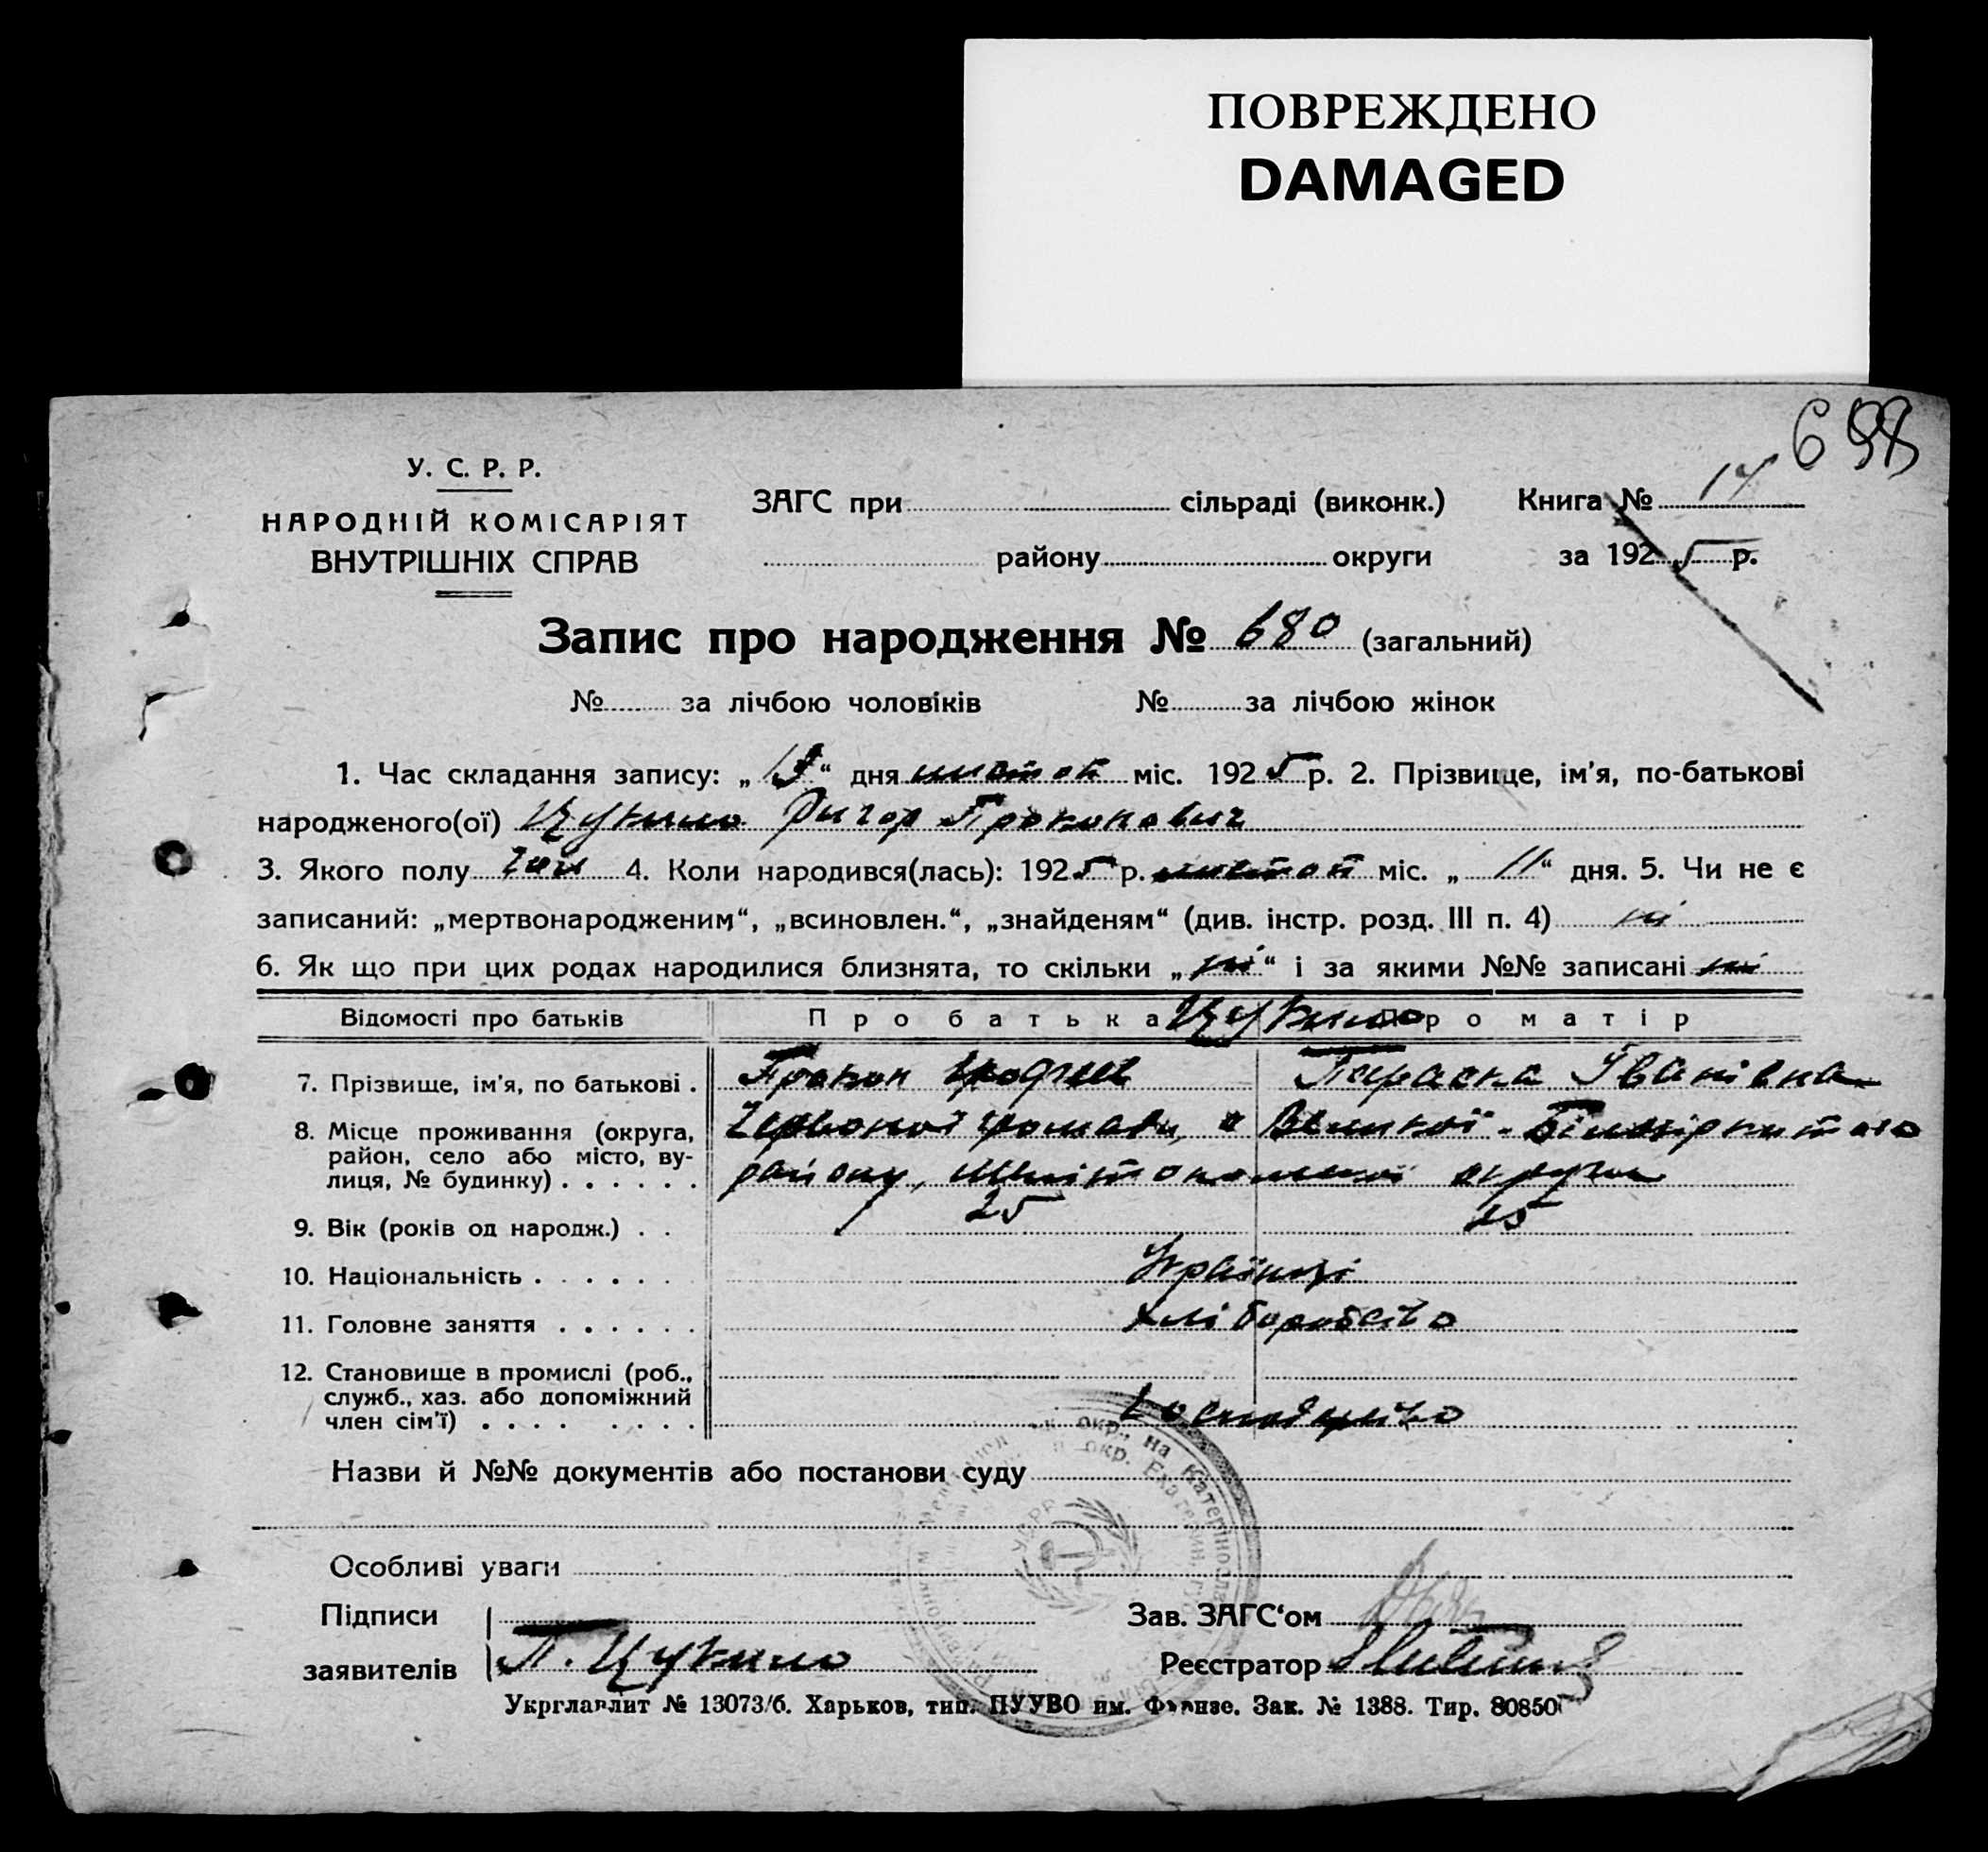 ПОВРЕЖДЕНО
DAMAGED
698
У. С. Р. Р.
НАРОДНІЙ КОМІСАРІЯТ
ВНУТРІШНІХ СПРАВ
ЗАГС при сільраді (виконк.) Книга № 14
району округи за 1925 р.
Запис про народження № 680 (загальний)
№ за лічбою чоловіків № за лічбою жінок
1. Час складання запису: „ “ дня листоп міс. 1925 р. 2. Прізвище, ім’я, по-батькові
народженого(ої) Цукило Ригор Прокопович
3. Якого полу чол 4. Коли народився(лась): 1925 р. листоп міс. „ 11 “ дня. 5. Чи не є
записаний: „мертвонародженим“, „всиновлен.“, „знайденям“ (див. інстр. розд. III п. 4) ні
6. Як що при цих родах народилися близнята, то скільки „ ні “ і за якими №№ записані ні
Відомості про батьків Про батька Про матір
Цукило
7. Прізвище, ім’я, по батькові . Прокоп Параска Іванівна
8. Місце проживання (округа, Червоної громади, Великої-
район, село або місто, ву- району, округи
лиця, № будинку) . . . . . .
9. Вік (років од народж.) . . 25 25
10. Національність . . . . . . . Українці
11. Головне заняття . . . . . . хліборобство
12. Становище в промислі (роб.,
служб., хаз. або допоміжний
член сім’ї) . . . . . . . .
Назви й №№ документів або постанови суду
Особливі уваги
Підписи Зав. ЗАГС‘ом
заявителів П. Цукило Реєстратор
Укрглавлит № 13073/6. Харьков, тип. ПУУВО им. Фрунзе. Зак. № 1388. Тир. 80850